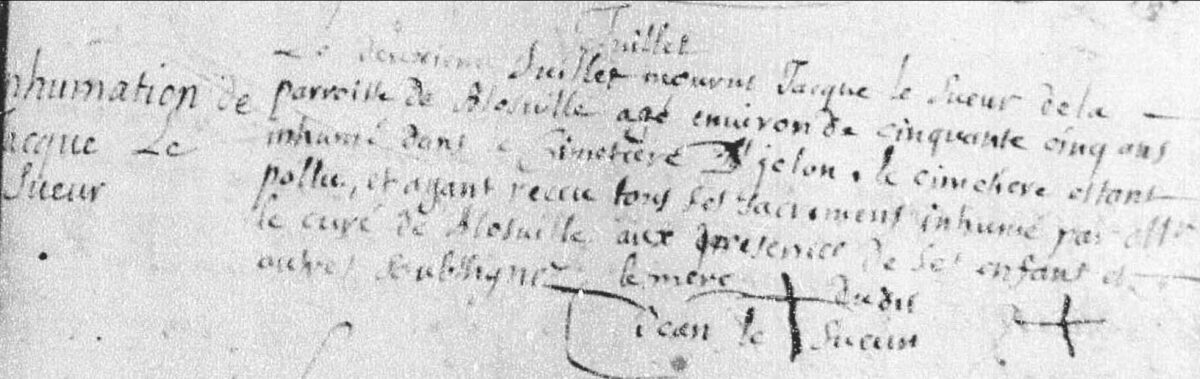 Juillet
Le deuxieme Juillet mourut Jacque le Sueur de la
nhumation de
parroisse de Blosville agé environ de cinquante cinq ans
acque Le
inhumé dans le Cimetière jelon le cimetiere estant
Sueur
pollu, et ayant receu tous ses sacrements inhumé par
le curé de Blosville aux presence de ses enfant et
autres soubsigne
le merc dudit
Jean le Sueur